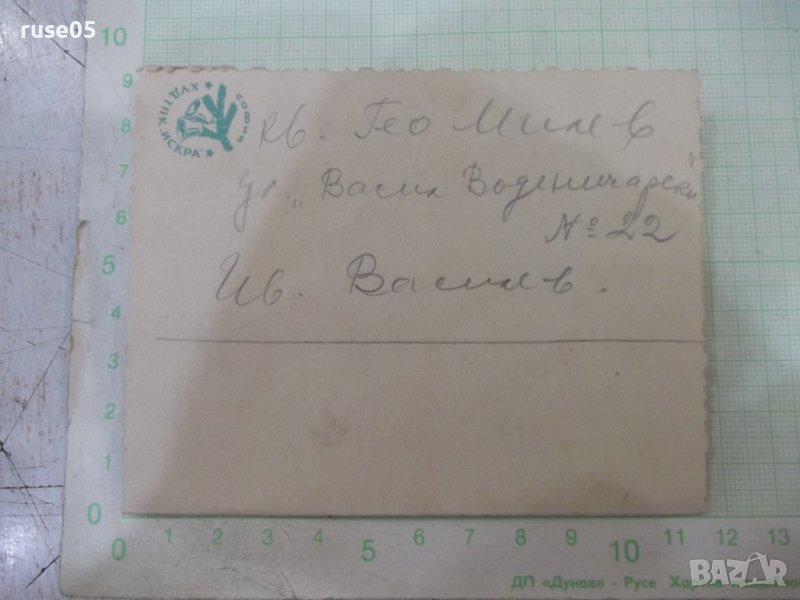 ruse05
ХУДТПК „ИСКРА"
СОФИЯ
кв. Гео Милев
ул. „Васил Воденичарски"
№ 22
Ив. Василев.
10
9
8
7
6
5
4
3
2
1
0
0 1 2 3 4 5 6 7 8 9 10 11 12 13
ДП «Дунав» - Русе
BAZAR